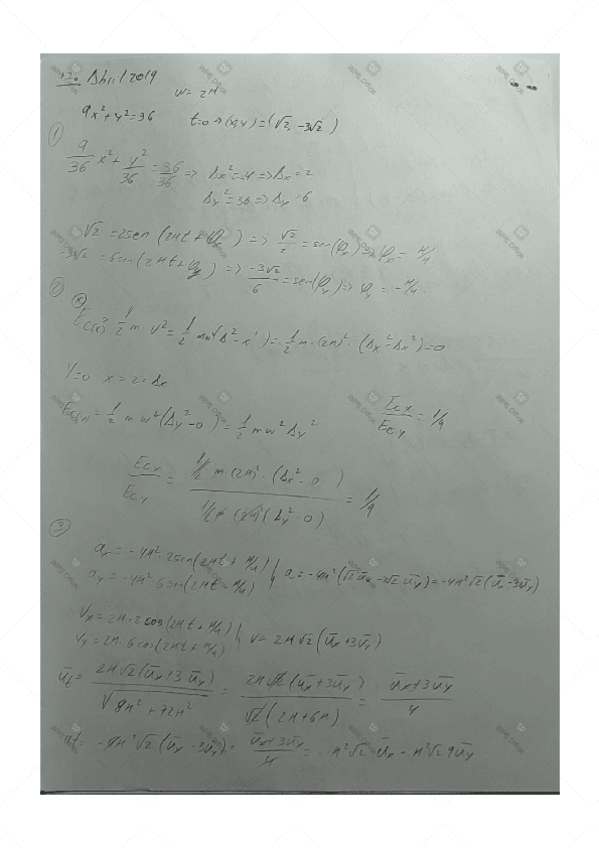 Abril 2019
w = 2π
9x²+y²=36   t=0 => (x,y) = (√2, -3√2)
①
9/36 x² + y²/36 = 36/36 => Ax² = 4 => Ax = 2
Ay² = 36 => Ay = 6
√2 = 2sen(2πt + φx) => √2/2 = sen(φx) => φx = π/4
-3√2 = 6sen(2πt + φy) => -3√2/6 = sen(φy) => φy = -π/4
②
Ec(x) = 1/2 m v² = 1/2 m w²(A² - x²) = 1/2 m (2π)² (Ax² - Ax²) = 0
y=0 x=2=Ax
= 1/2 m w² (Ay² - 0) = 1/2 m w² Ay²   Ecx/Ecy = 1/9
Ecx/Ecy = 1/2 m (2π)² (Ax² - 0) / 1/2 m (2π)² (Ay² - 0) = 1/9
③
ax = -4π² · 2sen(2πt + π/4)
ay = -4π² 6sen(2πt - π/4)   a = -4π² (√2 ux - 3√2 uy) = -4π² √2 (ux - 3uy)
Vx = 2π · 2cos(2πt + π/4)
Vy = 2π · 6cos(2πt + π/4)   v = 2π√2 (ux + 3uy)
ut = 2π√2 (ux + 3uy) / √(8π² + 72π²) = 2π√2 (ux + 3uy) / √2 (2π + 6π) = ux + 3uy / 4
at = -4π² √2 (ux - 3uy) · ux + 3uy / 4 = -π² √2 ux - π² √2 9uy